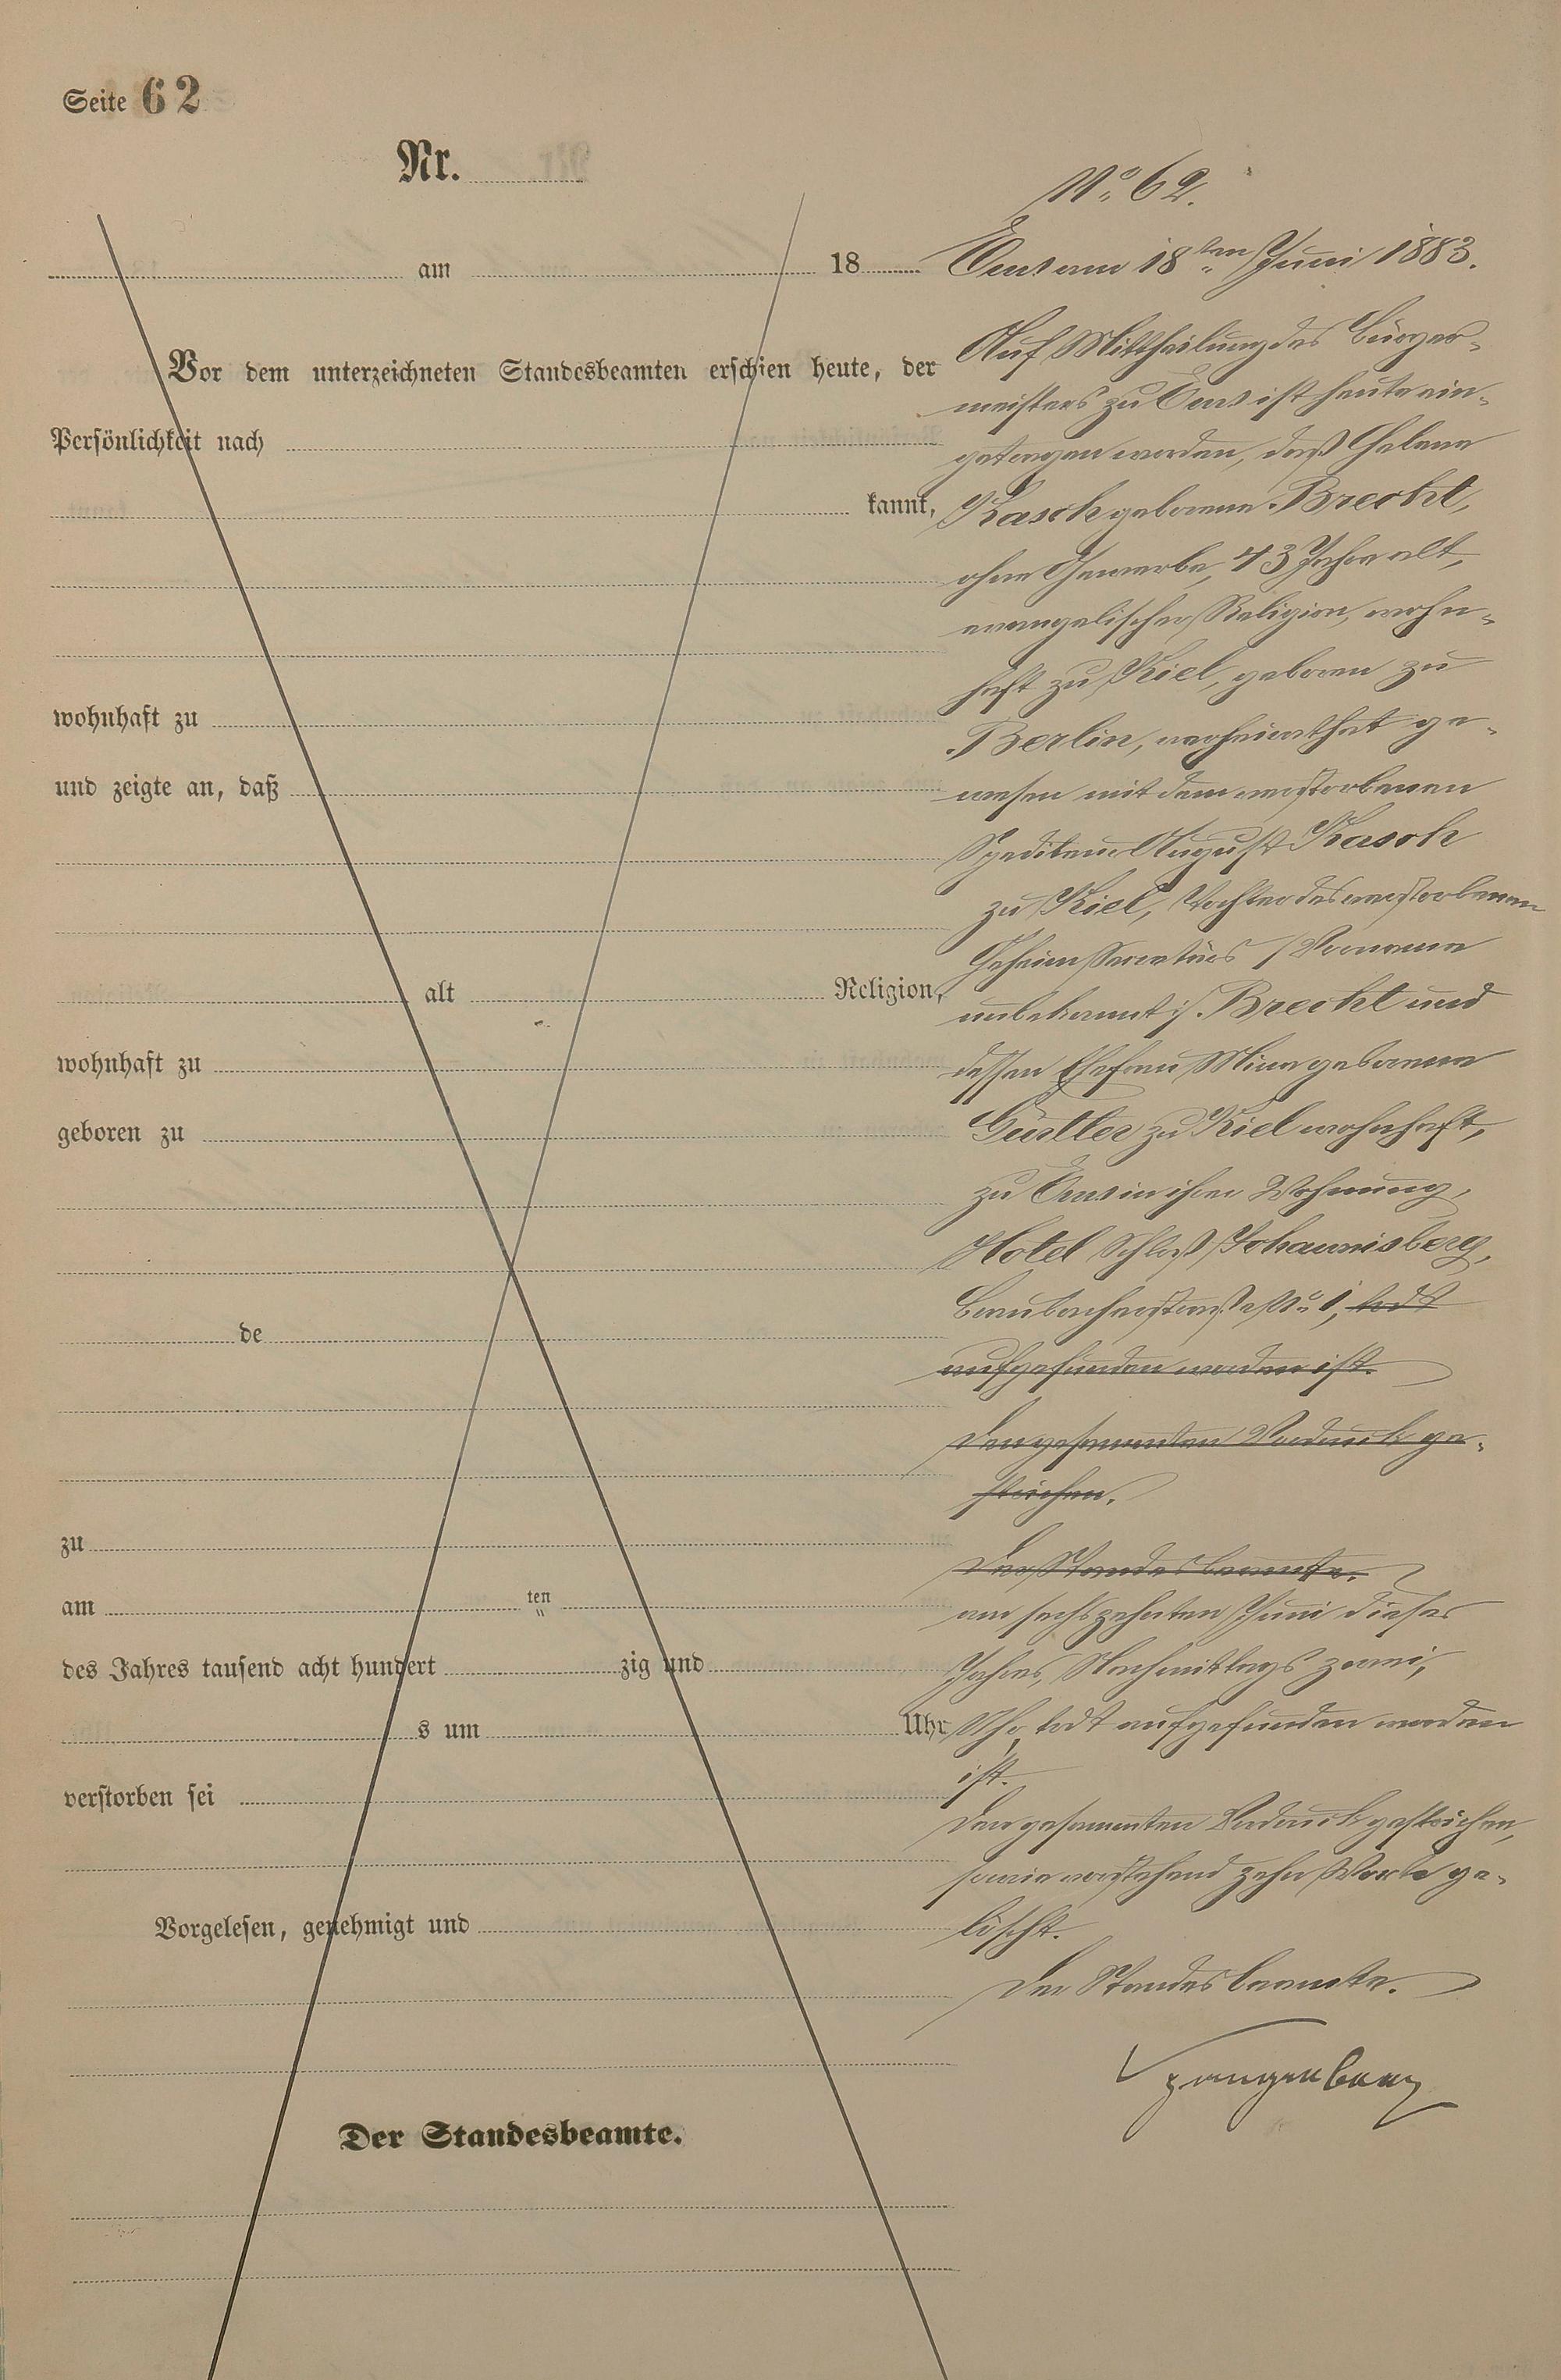 Seite 62
Nr.
am 18
Vor dem unterzeichneten Standesbeamten erschien heute, der
Persönlichkeit nach
kannt,
wohnhaft zu
und zeigte an, daß
alt Religion,
wohnhaft zu
geboren zu
de
zu
am ten
des Jahres tausend acht hundert zig und
s um Uhr
verstorben sei
Vorgelesen, genehmigt und
Der Standesbeamte.
No. 62.
Ems am 18ten Juni 1883.
Auf Mittheilung des Bürger-
meisters zu Ems ist heute ein-
getragen worden, daß Helene
Kasch geborene Brecht,
ohne Gewerbe, 43 Jahre alt,
evangelischer Religion, wohn-
haft zu Kiel, geboren zu
Berlin, verheirathet ge-
wesen mit dem verstorbenen
Spediteur August Kasch
zu Kiel, Tochter des verstorbenen
Geheimsecretärs /Vorname
unbekannt/. Brecht und
dessen Ehefrau Mina geborene
zu Kiel wohnhaft,
zu Ems in ihrer Wohnung,
Hotel Schloß Johannisberg,
No. 1, todt
aufgefunden worden ist.
Den gesammten Vordruck ge-
strichen.
Der Standesbeamte.
am sechszehnten Juni dieses
Jahres, Nachmittags zwei,
Uhr, todt aufgefunden worden
ist.
Den gesammten Vordruck gestrichen,
sowie vorstehend zehn Worte ge-
löscht.
Der Standesbeamte.
Spangenberg